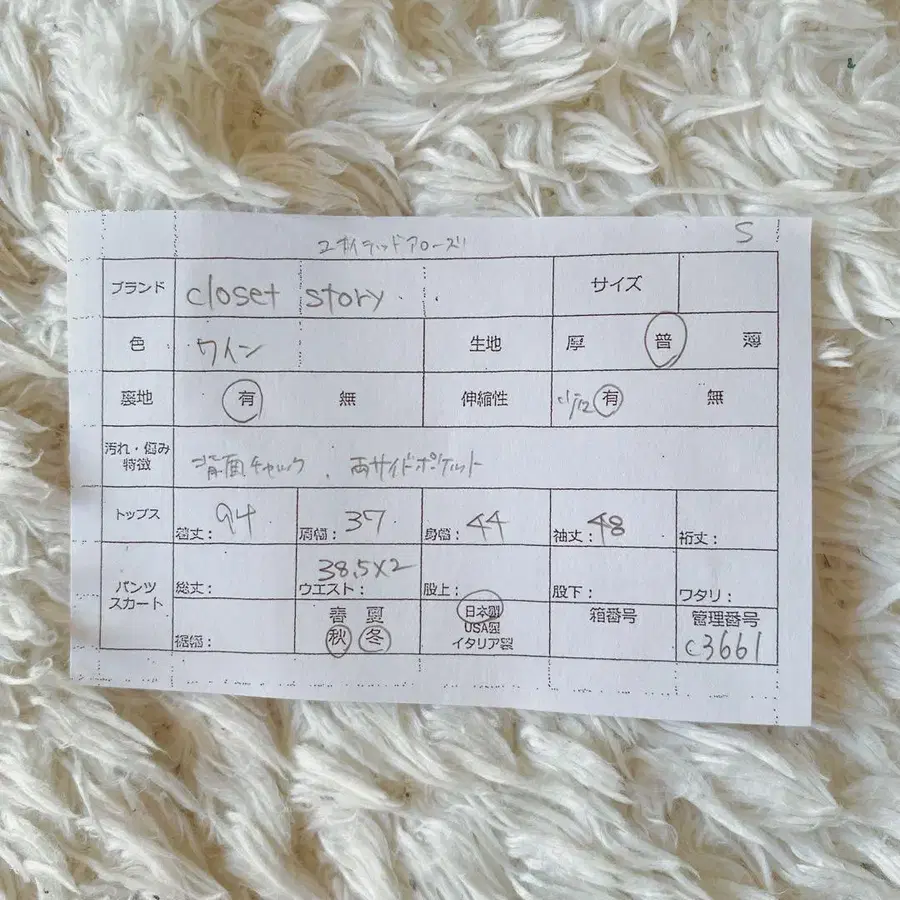 ユナイテッドアローズ S
ブランド closet story サイズ
色 ワイン 生地 厚 普 薄
裏地 有 無 伸縮性 有 無
汚れ・傷み
特徴 背面チャック、両サイドポケット
トップス 着丈: 94 肩幅: 37 身幅: 44 袖丈: 48 裄丈:
パンツ
スカート 総丈: ウエスト: 38.5×2 股上: 股下: ワタリ:
裾幅: 春 夏 秋 冬 日本製 USA製 イタリア製 箱番号 管理番号 C3661